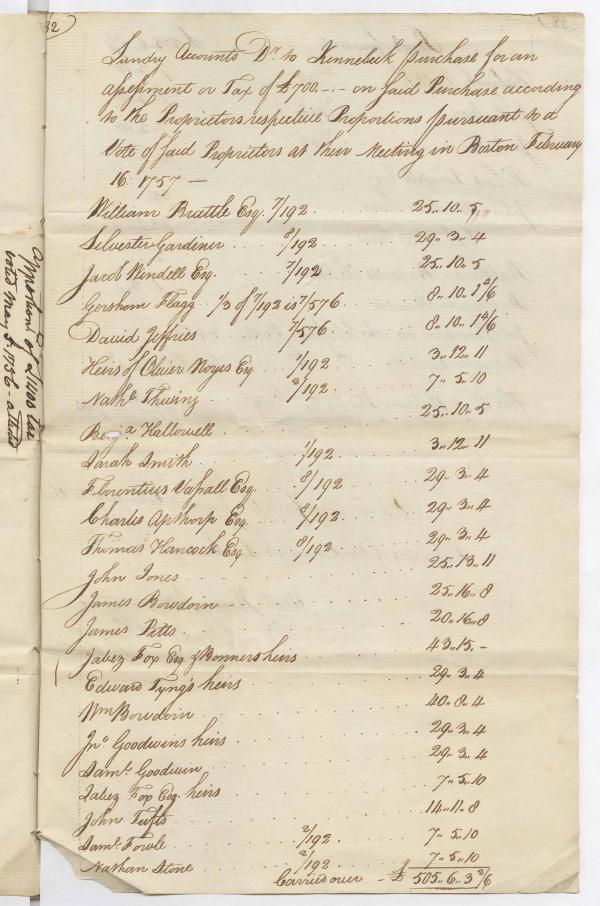 32)
Sundry Accounts Dr. to Kennebeck purchase for an
assessment or Tax of £700.-.- on said Purchase according
to the Proprietors respective Proportions pursuant to a
Vote of said Proprietors at their Meeting in Boston February
16. 1757 —
William Brattle Esq. 7/192 25.. 10.. 5
Silvester Gardiner 8/192 29.. 3.. 4
Jacob Wendell Esq. 7/192 25.. 10.. 5
Gershom Flagg 1/3 of 7/192 is 7/576 8.. 10.. 1 4/6
David Jeffries 7/576 8.. 10.. 1 4/6
Heirs of Oliver Noyes Esq 1/192 3.. 12.. 11
Nathl. Thwing 2/192 7.. 5.. 10
Benj a Hallowell 25.. 10.. 5
Sarah Smith 1/192 3.. 12.. 11
Florentius Vassall Esq. 8/192 29.. 3.. 4
Charles Apthorp Esq. 8/192 29.. 3.. 4
Thomas Hancock Esq 8/192 29.. 3.. 4
John Jones 25.. 13.. 11
James Bowdoin 25.. 16.. 8
James Pitts 20.. 16.. 8
Jabez Fox Esq & Bonners heirs 43.. 15.. -
Edward Tyng's heirs 29.. 3.. 4
Wm Bowdoin 40.. 8.. 4
Jno. Goodwins heirs 29.. 3.. 4
Saml. Goodwin 29.. 3.. 4
Jabez Fox Esq. heirs 7.. 5.. 10
John Tufts 14.. 11.. 8
Saml. Fowle 2/192 7.. 5.. 10
Nathan Stone 2/192 7.. 5.. 10
Carried over - £ 505.. 6.. 3 2/6
voted May 5. 1756